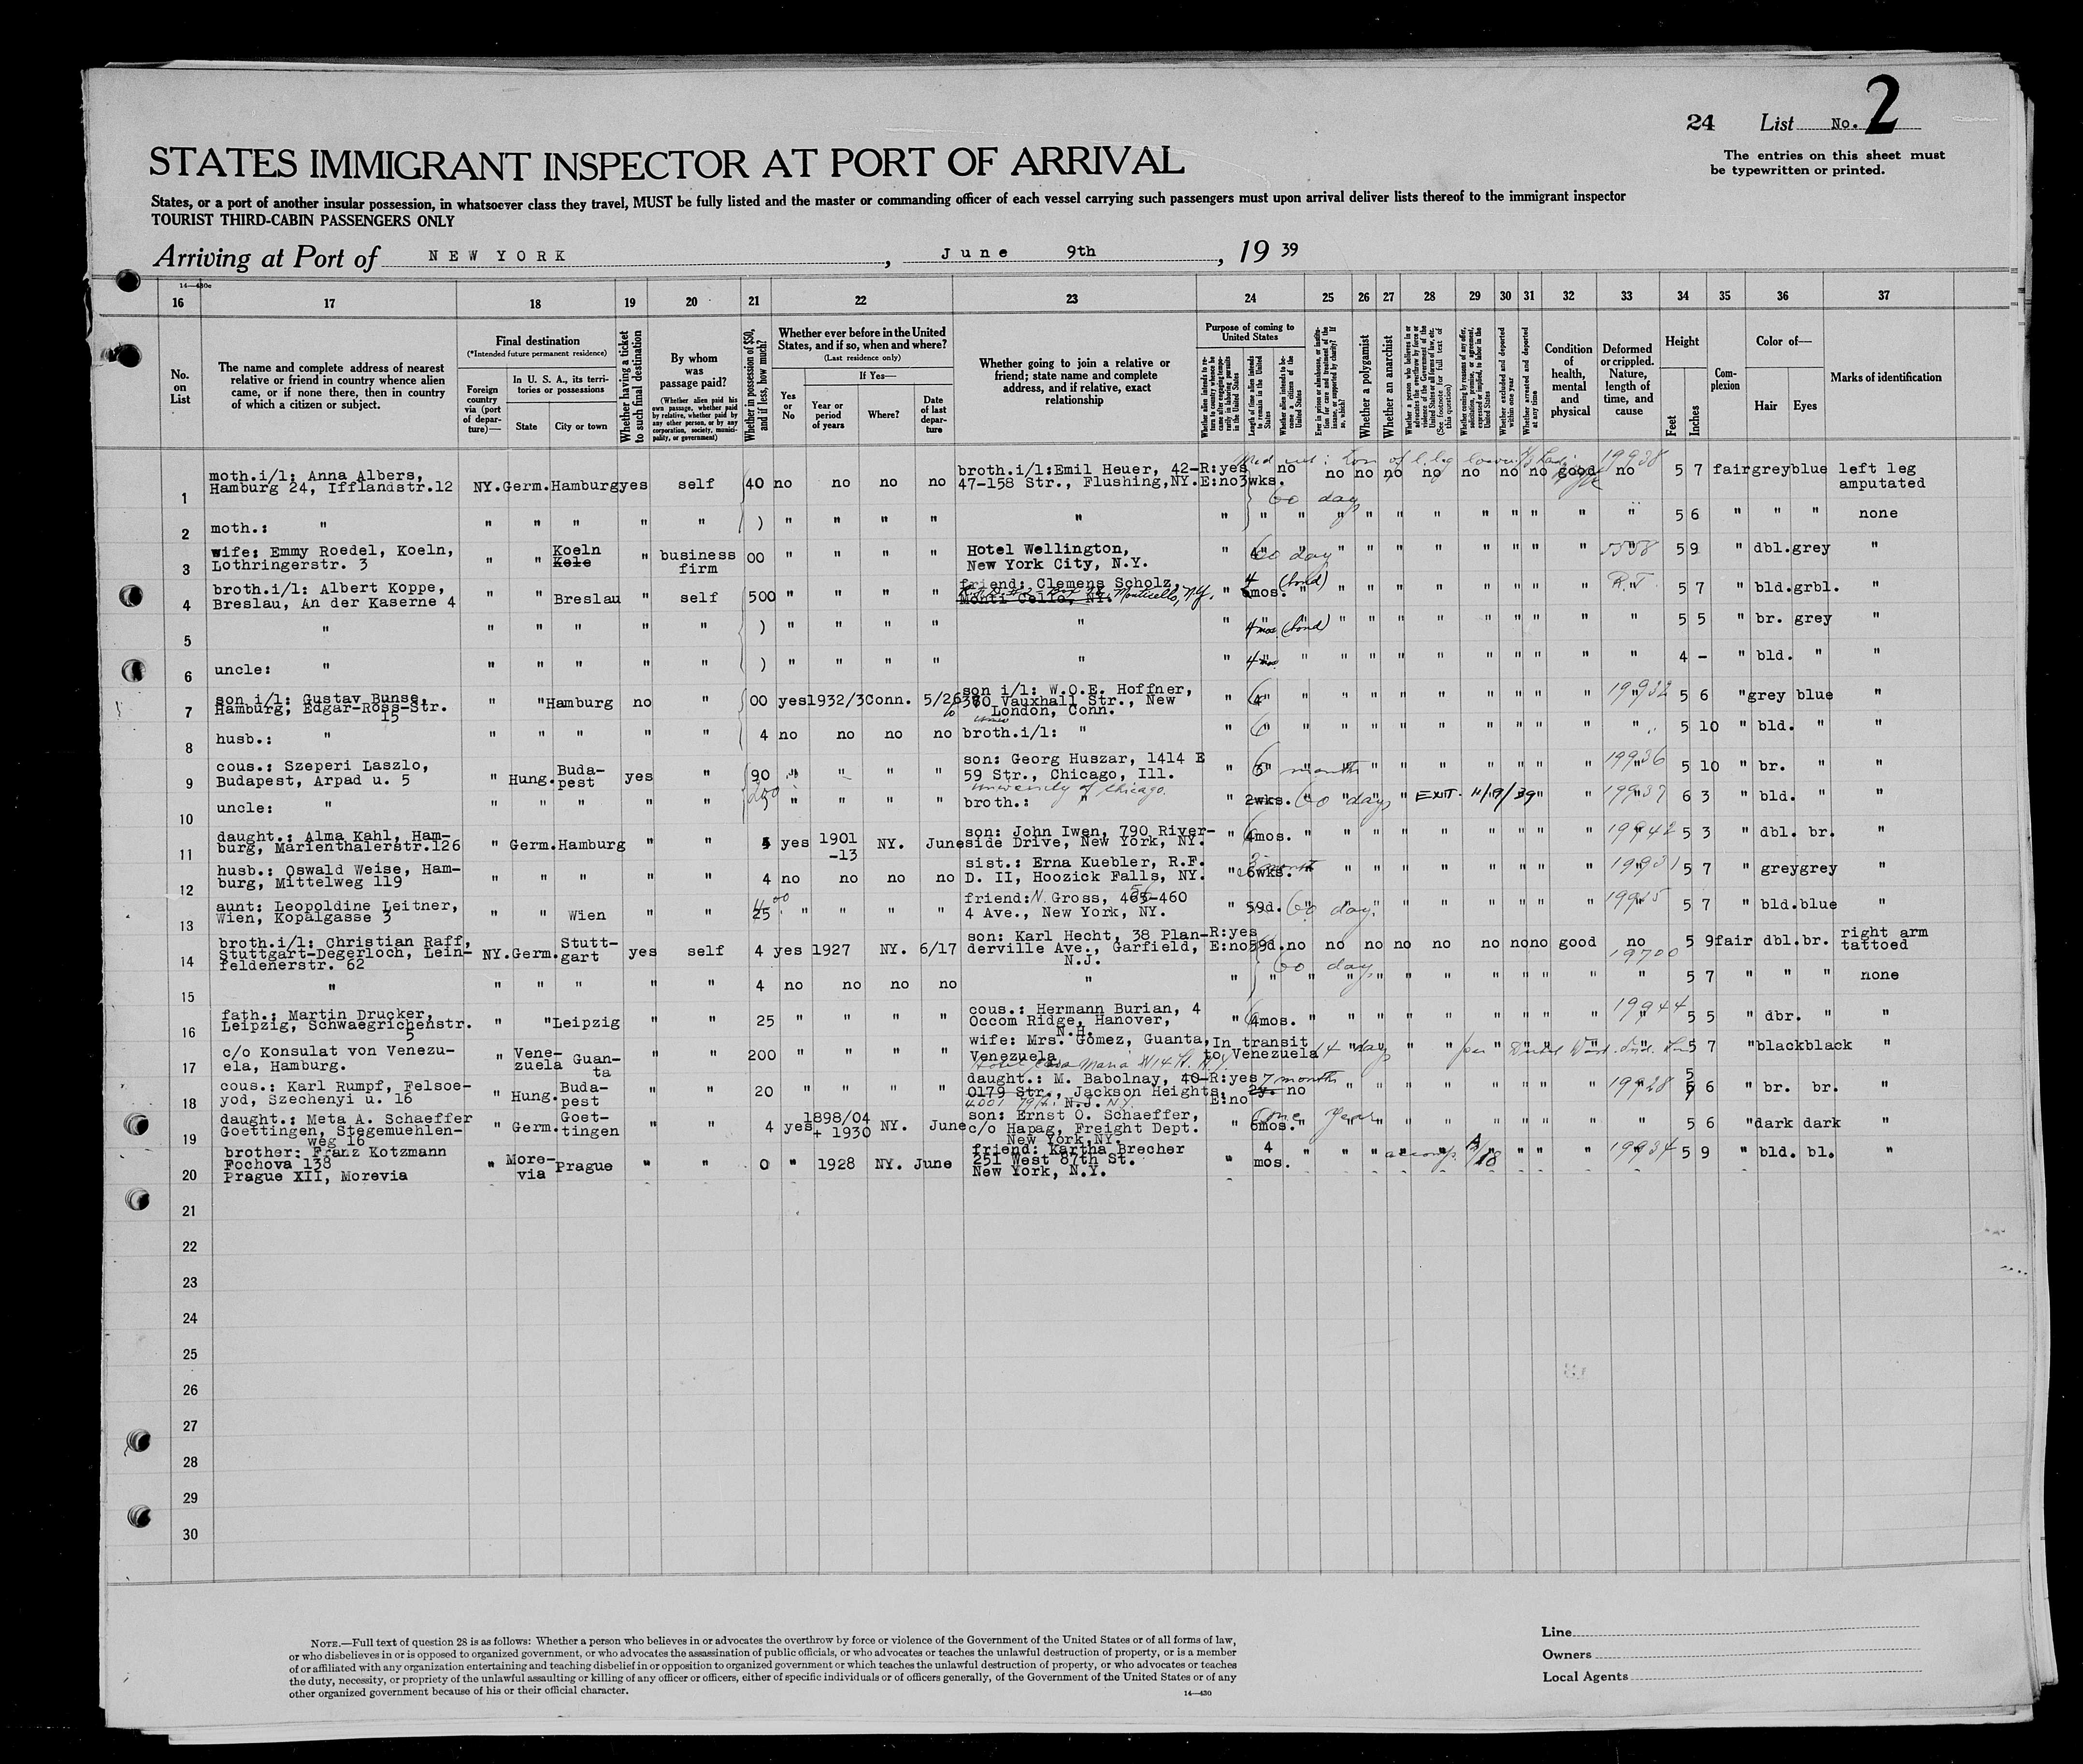 24 List No. 2
The entries on this sheet must
be typewritten or printed.
STATES IMMIGRANT INSPECTOR AT PORT OF ARRIVAL
States, or a port of another insular possession, in whatsoever class they travel, MUST be fully listed and the master or commanding officer of each vessel carrying such passengers must upon arrival deliver lists thereof to the immigrant inspector
TOURIST THIRD-CABIN PASSENGERS ONLY
Arriving at Port of NEW YORK, June 9th, 19 39
16 17 18 19 20 21 22 23 24 25 26 27 28 29 30 31 32 33 34 35 36 37
No. on List
The name and complete address of nearest relative or friend in country whence alien came, or if none there, then in country of which a citizen or subject.
Final destination
(*Intended future permanent residence)
Foreign country via (port of departure)—
In U. S. A., its territories or possessions
State
City or town
Whether having a ticket to such final destination
By whom was passage paid?
(Whether alien paid his own passage, whether paid by relative, whether paid by any other person, or by any corporation, society, municipality, or government)
Whether in possession of $50, and if less, how much?
Whether ever before in the United States, and if so, when and where?
(Last residence only)
If Yes—
Yes or No
Year or period of years
Where?
Date of last departure
Whether going to join a relative or friend; state name and complete address, and if relative, exact relationship
Purpose of coming to United States
Whether a polygamist
Whether an anarchist
Condition of health, mental and physical
Deformed or crippled. Nature, length of time, and cause
Height
Feet
Inches
Complexion
Color of—
Hair
Eyes
Marks of identification
1 moth.i/l: Anna Albers, Hamburg 24, Ifflandstr.12 NY. Germ. Hamburg yes self 40 no no no no broth.i/l:Emil Heuer, 42-47-158 Str., Flushing,NY. R:yes E:no 3wks. no no no no no no no no good no 5 7 fair grey blue left leg amputated
60 days
2 moth.: " " " " " " ) " " " " " " " " " " " " " " " " " 5 6 " " " none
3 wife: Emmy Roedel, Koeln, Lothringerstr. 3 " " Koeln Kele " business firm 00 " " " " Hotel Wellington, New York City, N.Y. " 60 day " " " " " " " " 5 9 " dbl. grey "
4 broth.i/l: Albert Koppe, Breslau, An der Kaserne 4 " " Breslau " self 500 " " " " friend: Clemens Scholz, Monti Cello, NY. Monticello, NY. " 4 mos. (bond) " " " " " " " " R.T. 5 7 " bld. grbl. "
5 " " " " " " ) " " " " " " 4 mos (bond) " " " " " " " " " 5 5 " br. grey "
6 uncle: " " " " " " ) " " " " " " 4 mos " " " " " " " " " " 4 - " bld. " "
7 son i/l: Gustav Bunse, Hamburg, Edgar-Ross-Str. 15 " " Hamburg no " 00 yes 1932/3 Conn. 5/26 son i/l: W.O.E. Hoffner, Vauxhall Str., New London, Conn. " " " " " " " " " " 19932 5 6 " grey blue "
8 husb.: " " " " " " 4 no no no no broth.i/l: " " " " " " " " " " " " 5 10 " bld. " "
9 cous.: Szeperi Laszlo, Budapest, Arpad u. 5 " Hung. Budapest yes " 90 " " " " son: Georg Huszar, 1414 E 59 Str., Chicago, Ill. University of Chicago. " 6 months " " " " " " " 19936 5 10 " br. " "
10 uncle: " " " " " " " " " " broth.: " " 2wks. 60 days " " EXIT. 11/19/39 " " 19937 6 3 " bld. " "
11 daught.: Alma Kahl, Hamburg, Marienthalerstr.126 " Germ. Hamburg " " yes 1901-13 NY. June son: John Iwen, 790 Riverside Drive, New York, NY. " mos. " " " " " " " " " 19942 5 3 " dbl. br. "
12 husb.: Oswald Weise, Hamburg, Mittelweg 119 " " " " " 4 no no no no sist.: Erna Kuebler, R.F.D. II, Hoozick Falls, NY. " 6wks. 3 month " " " " " " " " 19931 5 7 " grey grey "
13 aunt: Leopoldine Leitner, Wien, Kopalgasse 3 " " Wien " " 25 " " " " friend: N. Gross, 460 4 Ave., New York, NY. " 59d. 60 day " " " " " " " 5 7 " bld. blue "
14 broth.i/l: Christian Raff, Stuttgart-Degerloch, Leinfeldenerstr. 62 NY. Germ. Stuttgart yes self 4 yes 1927 NY. 6/17 son: Karl Hecht, 38 Planderville Ave., Garfield, N.J. R:yes E:no 59d. no no no no no no no no good no 19700 5 9 fair dbl. br. right arm tattoed
60 day
15 " " " " " " 4 no no no no " " " " " " " " " " " " " 5 7 " " " none
16 fath.: Martin Drucker, Leipzig, Schwaegrichenstr. 5 " " Leipzig " " 25 " " " " cous.: Hermann Burian, 4 Occom Ridge, Hanover, N.H. " mos. " " " " " " " " " 19944 5 5 " dbr. " "
17 c/o Konsulat von Venezuela, Hamburg. " Venezuela Guanta " " 200 " " " " wife: Mrs. Gomez, Guanta, Venezuela In transit to Venezuela 14 days " " " 5 7 " black black "
18 cous.: Karl Rumpf, Felsoeyod, Szechenyi u. 16 " Hung. Budapest " " 20 " " " " daught.: M. Babolnay, 40-0179 Str., Jackson Heights, N.J. N.Y. R:yes E:no 2y. 7 months no " " " " " " " " 19928 5 6 " br. br. "
19 daught.: Meta A. Schaeffer Goettingen, Stegemuehlenweg 16 " Germ. Goettingen " " 4 yes 1898/04 + 1930 NY. June son: Ernst O. Schaeffer, c/o Hapag, Freight Dept. New York,NY. " 6mos. One Year " " " " " " " " " 5 6 " dark dark "
20 brother: Franz Kotzmann Fochova 138 Prague XII, Morevia " Morevia Prague " " 0 " 1928 NY. June friend: Kartha Brecher 251 West 87th St. New York, N.Y. " 4 mos. " " " " " " " 19934 5 9 " bld. bl. "
21
22
23
24
25
26
27
28
29
30
NOTE.—Full text of question 28 is as follows: Whether a person who believes in or advocates the overthrow by force or violence of the Government of the United States or of all forms of law,
or who disbelieves in or is opposed to organized government, or who advocates the assassination of public officials, or who advocates or teaches the unlawful destruction of property, or is a member
of or affiliated with any organization entertaining and teaching disbelief in or opposition to organized government or which teaches the unlawful destruction of property, or who advocates or teaches
the duty, necessity, or propriety of the unlawful assaulting or killing of any officer or officers, either of specific individuals or of officers generally, of the Government of the United States or of any
other organized government because of his or their official character.
14—430
Line
Owners
Local Agents